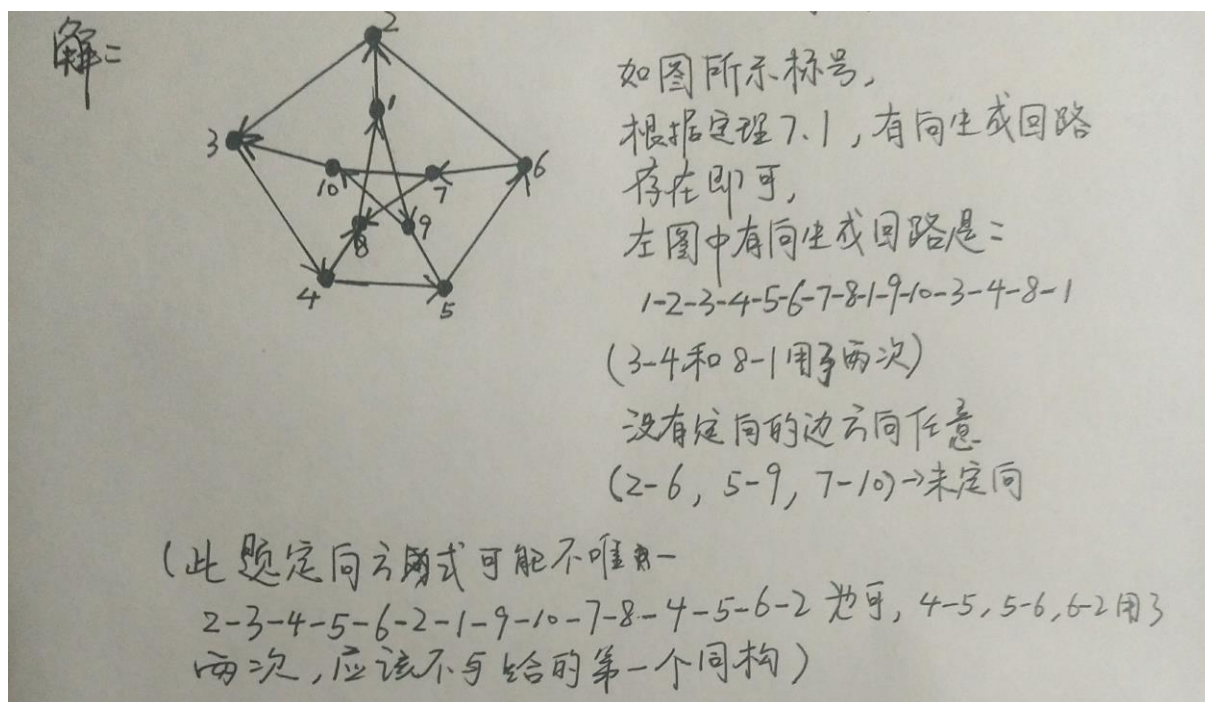 解:
2
1
3
6
10
7
8
9
4
5
如图所示标号,
根据定理7.1,有向生成回路
存在即可,
左图中有向生成回路是:
1-2-3-4-5-6-7-8-1-9-10-3-4-8-1
(3-4和8-1用了两次)
没有定向的边方向任意
(2-6, 5-9, 7-10)→未定向
(此题定向方式可能不唯一
2-3-4-5-6-2-1-9-10-7-8-4-5-6-2 也可, 4-5, 5-6, 6-2用了
两次,应该不与给的第一个同构)